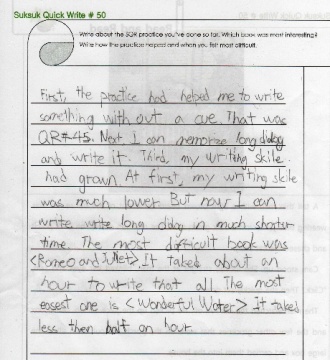 Suksuk Quick Write # 50
Write about the SQR practice you've done so far. Which book was most interesting?
Write how the practice helped and when you felt most difficult.
First, the practice had helped me to write
something with out a cue. That was
QR#45. Next I can memorize long dialog
and write it. Third, my writing skile
had grown. At first, my writing skile
was much lower But now I can
write write long dialog in much shorter
time. The most difficult book was
<Romeo and Juliet> It taked about an
hour to write that all The most
easest one is <Wonderful Water> It taked
less then half an hour